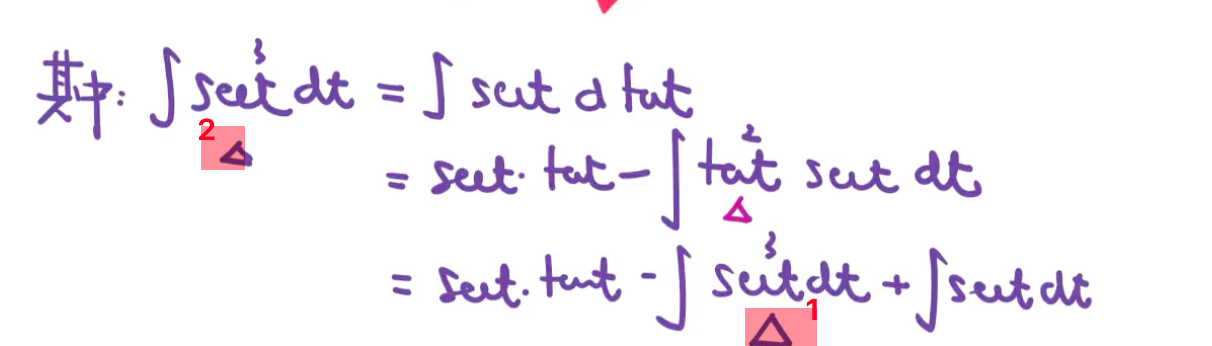 其中: ∫ sec³t dt = ∫ sect d tant
2
△
= sect · tant − ∫ tan²t sect dt
△
= sect · tant − ∫ sec³t dt + ∫ sect dt
1
△